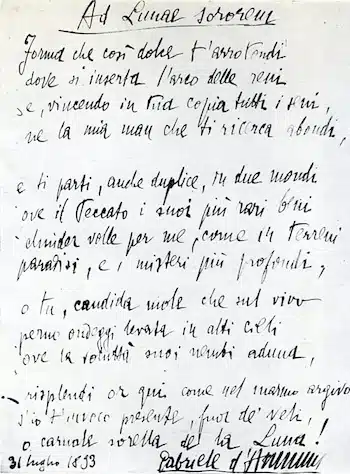 Ad Lunae sororem
Forma che così dolce t'arrotondi
dove si inserta l'arco delle reni
se, vincendo in tua copia tutti i seni,
ne la mia man che ti ricerca abondi,
e ti parti, anche duplice, in due mondi
ove il Peccato i suoi più rari beni
chiuder volle per me, come in terreni
paradisi, e i misteri più profondi,
o tu, candida mole che sul vivo
perno ondeggi levata in alti cieli
ove la voluttà suoi nembi aduna,
risplendi or qui come nel marmo argivo
s'io t'invoco presente, fuor de' veli,
o carnale sorella de la Luna!
31 luglio 1893 Gabriele d'Annunzio